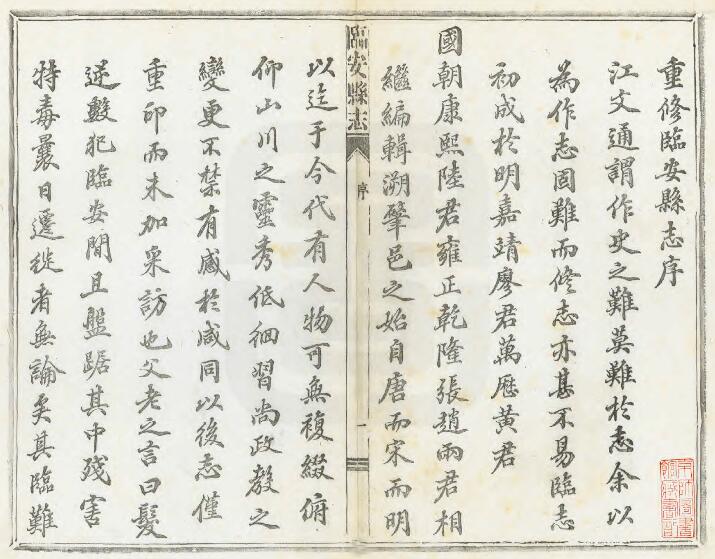 重修臨安縣志序
江文通謂作史之難莫難於志余以
為作志固難而修志亦甚不易臨志
初成於明嘉靖廖君萬歷黃君
國朝康熙陸君雍正乾隆張趙兩君相
繼編輯溯肇邑之始自唐而宋而明
臨安縣志
序
一
以迄于今代有人物可無複綴俯
仰山川之靈秀低徊習尚政教之
變更不禁有感於咸同以後志僅
重印而未加采訪也父老之言曰髮
逆數犯臨安間且盤踞其中殘害
特毒曩日遷徙者無論矣其臨難